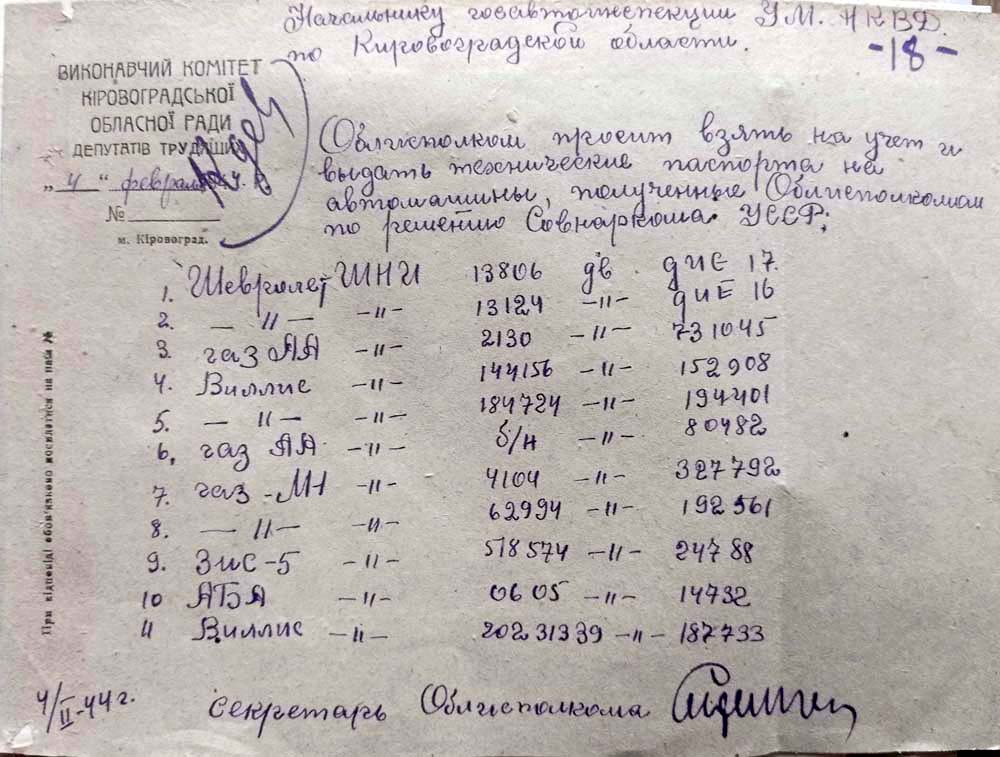 Начальнику госавтоинспекции У.М. НКВД.
по Кировоградской области.
-18-
ВИКОНАВЧИЙ КОМІТЕТ
КІРОВОГРАДСЬКОЇ
ОБЛАСНОЇ РАДИ
ДЕПУТАТІВ ТРУДЯЩИХ
„4“ февраля
№
м. Кіровоград.
При відповіді обов'язково посилатися на наш №
Облисполком просит взять на учет и
выдать технические паспорта на
автомашины, полученные Облисполкомом
по решению Совнаркома УССР;
1. Шевролет ШНИ 13806 дв ДИЕ 17.
2. — " — -"- 13124 -"- ДИЕ 16
3. газ АА -"- 2130 -"- 731045
4. Виллис -"- 144156 -"- 152908
5. — " — -"- 184724 -"- 194401
6, газ АА -"- б/н -"- 80482
7. газ-МН -"- 4104 -"- 327792
8. — " — -"- 62994 -"- 192561
9. Зис-5 -"- 518574 -"- 24788
10 АБА -"- 0605 -"- 14732
11 Виллис -"- 20231339 -"- 187733
4/II-44 г.
секретарь Облисполкома